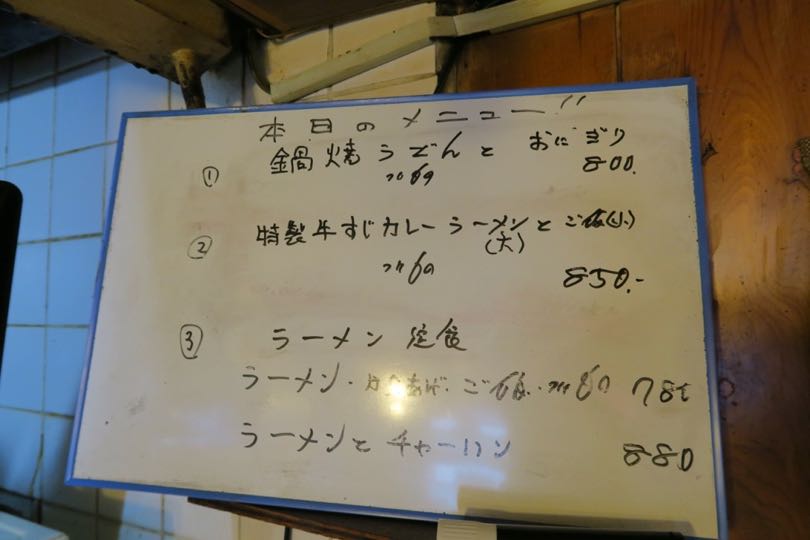 本日のメニュー!!
① 鍋焼うどんと おにぎり
つけもの 800.
② 特製牛すじカレーラーメンとご飯(小)
(大)
つけもの 850.-
③ ラーメン定食
ラーメン・からあげ・ご飯・つけもの 78
ラーメンとチャーハン 880